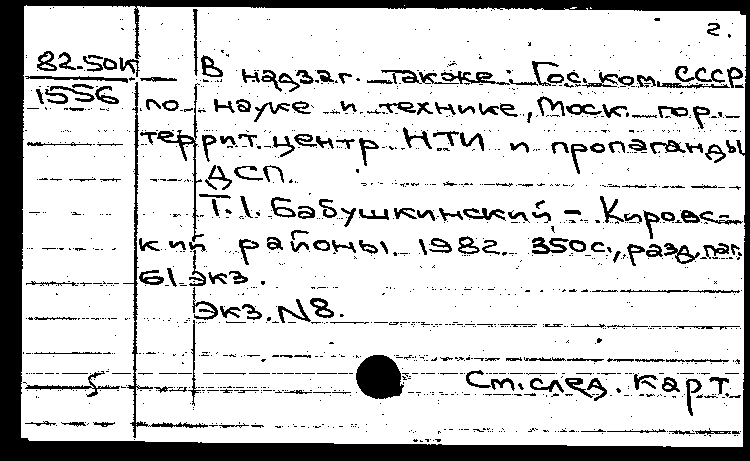 2.
82.50К
1556
В надзаг. также: Гос. ком. СССР
по науке и технике, Моск. гор.
террит. центр НТИ и пропаганды
ДСП.
Т.1. Бабушкинский – Кировс-
кий районы. 1982. 350с., разд. паг.
61 экз.
Экз. №8.
5
См. след. карт.